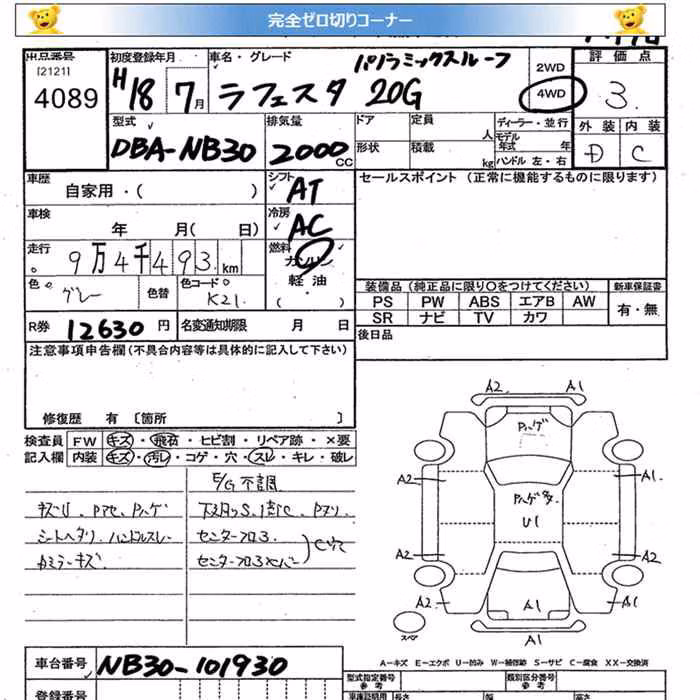 完全ゼロ切りコーナー
出品番号 初度登録年月 車名・グレード パノラミックルーフ 2WD 評価点
[2121] 4089 H18 7月 ラフェスタ 20G 4WD 3.
型式 排気量 ドア 定員 人 ディーラー・並行 外装 内装
DBA-NB30 2000CC 形状 積載 kg モデル年式 年 ハンドル 左・右 D C
車歴 シフト セールスポイント (正常に機能するものに限ります)
自家用・( ) AT
車検 冷房
年 月( 日) AC
走行 燃料
9万4千493km ガソリン
色 グレー 色替 色コード K21 軽油 ( ) 装備品 (純正品に限り〇をつけてください) 新車保証書
PS PW ABS エアB AW 有・無
R券 12630円 名変通知期限 月 日 SR ナビ TV カワ
後日品
注意事項申告欄(不具合内容等は具体的に記入して下さい)
修復歴 有 〔箇所 〕
検査員 FW キズ・飛石・ヒビ割・リペア跡・×要
記入欄 内装 キズ・汚レ・コゲ・穴・スレ・キレ・破レ
E/G不調
キズU、Pマセ、Pハゲ
シートヘタリ、ハンドルスレ
センターフロア
A2 A1
Pハゲ
A2 A1
Pハゲ多
U1
A2 A2
A2 A1 A1
スペア
A1
A-キズ E-エクボ U-凹み W-補修跡 S-サビ C-腐食 XX-交換済
車台番号 NB30-101930
型式指定番号 参考 類別区分番号 参考
登録番号 車庫証明用 長さ 幅 高さ